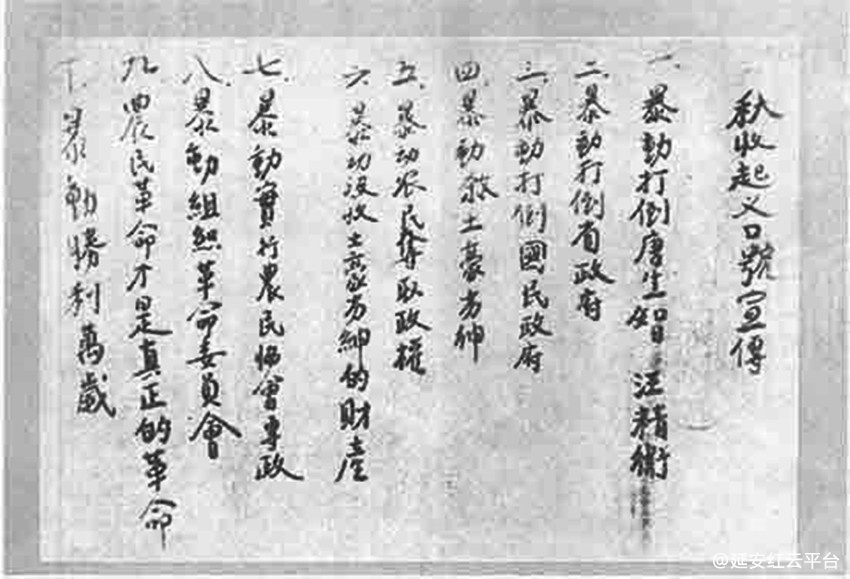 秋收起义口號宣傳
一、暴動打倒唐生智 汪精衛
二、暴動打倒省政府
三、暴動打倒國民政府
四、暴動殺土豪劣紳
五、暴动农民奪取政權
六、暴动没收土豪劣紳的財産
七、暴動實行農民協會專政
八、暴動組織革命委員會
九、農民革命才是真正的革命
十、暴動勝利萬歲
@延安红云平台